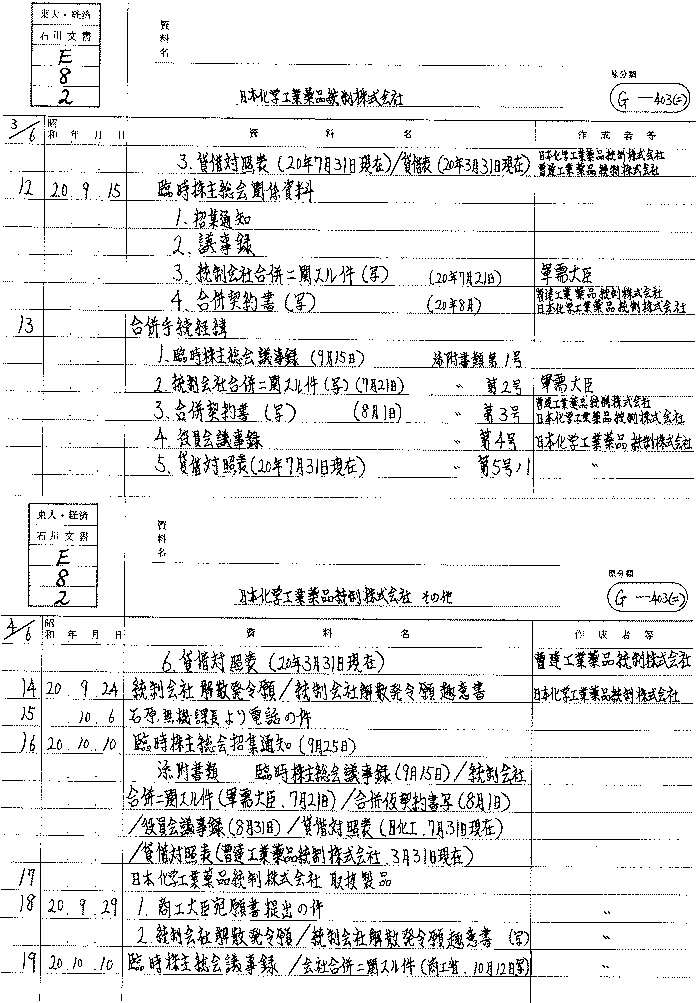 東大・経済
石川文書
E
8
2
資料名
日本化学工業薬品統制株式会社
原分類
G—403(二)
3/6 昭和 年 月 日 資 料 名 作成者等
3. 貸借対照表 (20年7月31日現在)/貸借表 (20年3月31日現在) 日本化学工業薬品統制株式会社
曹達工業薬品統制株式会社
12 20 9 15 臨時株主総会関係資料
1. 招集通知
2. 議事録
3. 統制会社合併ニ関スル件 (写) (20年7月21日) 軍需大臣
4. 合併契約書 (写) (20年8月) 曹達工業薬品統制株式会社
日本化学工業薬品統制株式会社
13 合併手続経緯
1. 臨時株主総会議事録 (9月15日) 添附書類第1号
2. 統制会社合併ニ関スル件 (写) (7月21日) 〃 第2号 軍需大臣
3. 合併契約書 (写) (8月1日) 〃 第3号 曹達工業薬品統制株式会社
日本化学工業薬品統制株式会社
4. 役員会議事録 〃 第4号 日本化学工業薬品統制株式会社
5. 貸借対照表 (20年7月31日現在) 〃 第5号ノ1 〃
東大・経済
石川文書
E
8
2
資料名
日本化学工業薬品統制株式会社 その他
原分類
G—403(二)
4/6 昭和 年 月 日 資 料 名 作成者等
6. 貸借対照表 (20年3月31日現在) 曹達工業薬品統制株式会社
14 20 9 24 統制会社解散発令願/統制会社解散発令願趣意書 日本化学工業薬品統制株式会社
15 10 6 石原無機課長より電話の件
16 20 10 10 臨時株主総会招集通知 (9月25日)
添附書類 臨時株主総会議事録 (9月15日)/統制会社
合併ニ関スル件 (軍需大臣、7月21日)/合併仮契約書写 (8月1日)
/役員会議事録 (8月31日)/貸借対照表 (日化工、7月31現在)
/貸借対照表 (曹達工業薬品統制株式会社、3月31日現在)
17 日本化学工業薬品統制株式会社 取扱製品
18 20 9 29 1. 商工大臣宛願書提出の件 〃
2. 統制会社解散発令願/統制会社解散発令願趣意書 (写) 〃
19 20 10 10 臨時株主総会議事録 /会社合併ニ関スル件 (商工省、10月12日写) 〃